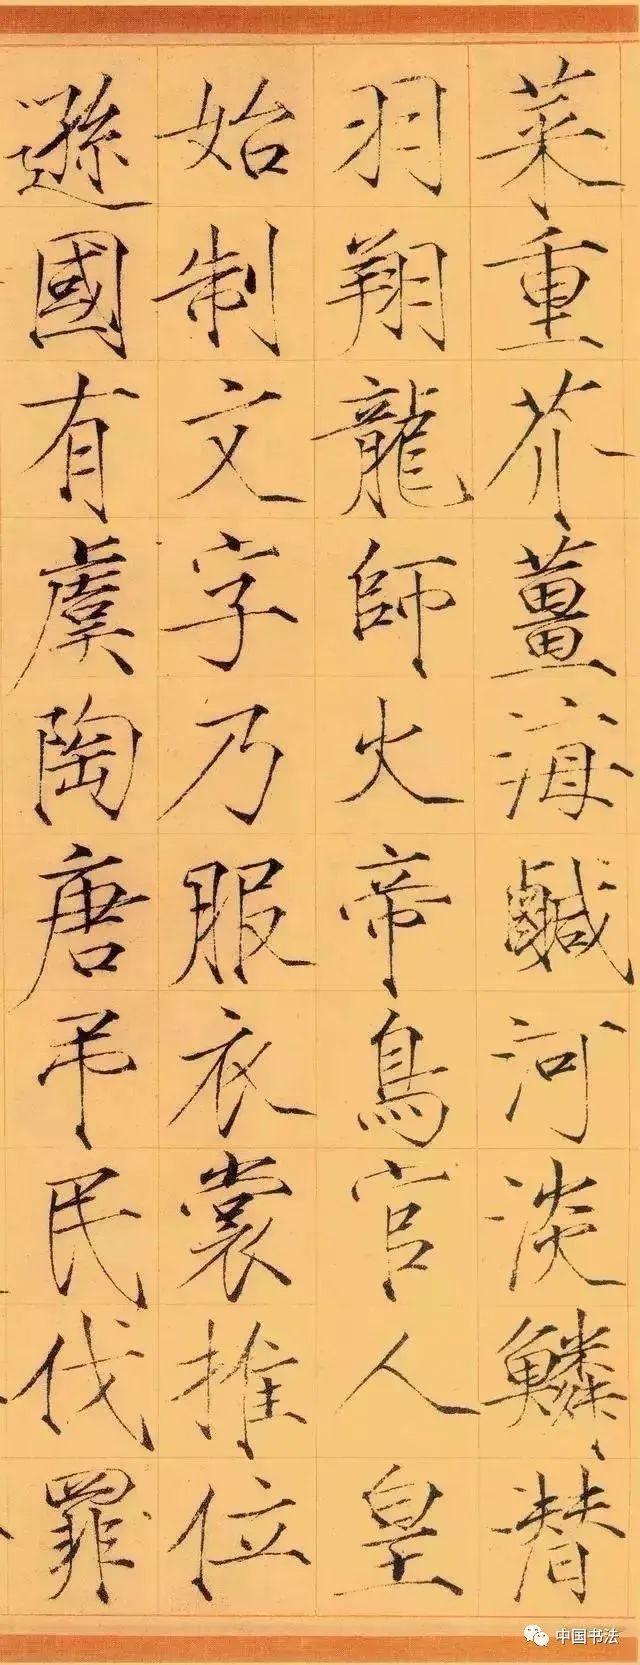 菜重芥薑海鹹河淡鱗潛
羽翔龍師火帝鳥官人皇
始制文字乃服衣裳推位
遜國有虞陶唐弔民伐罪
中国书法